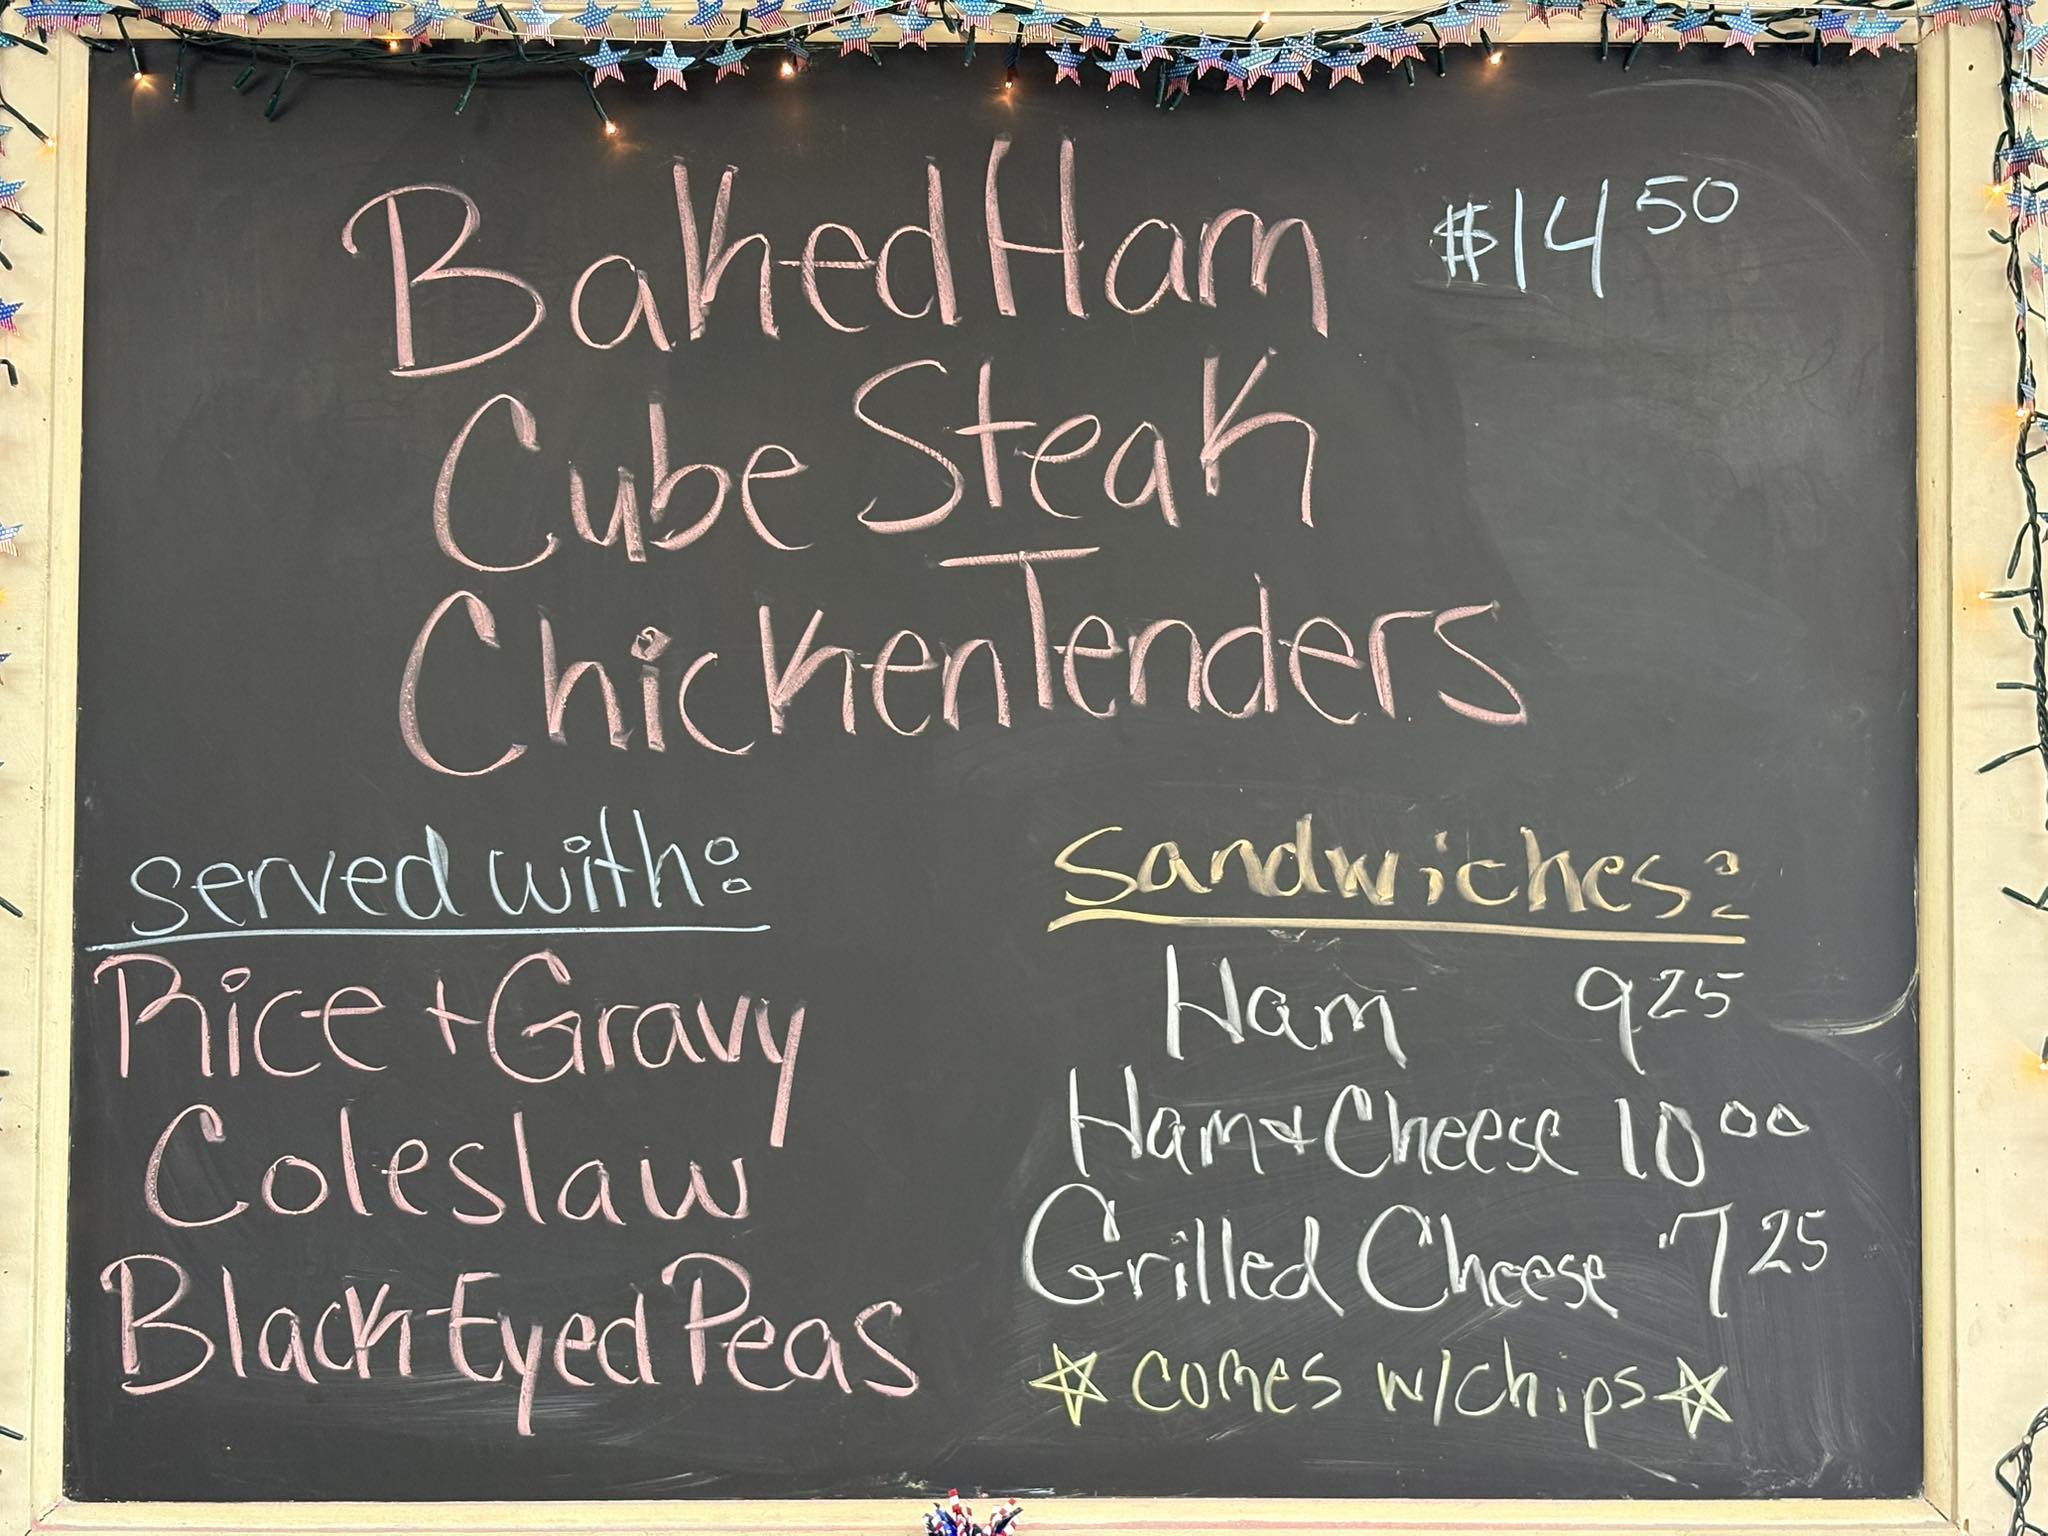 Baked Ham $14 50
Cube Steak
Chicken Tenders
served with:
Rice + Gravy
Coleslaw
Black-Eyed Peas
Sandwiches:
Ham 9 25
Ham + Cheese 10 00
Grilled Cheese 7 25
☆ comes w/chips ☆